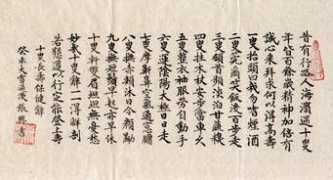 昔有行路人海濱逢十叟
年皆百餘歲精神加倍有
誠心前來拜求何以得高壽
一叟拈鬚曰我勿嗜煙酒
二叟笑莞爾飯後百步走
三叟頷首頻淡泊甘蔬糗
四叟拄木杖安步當車久
五叟整衣袖服勞自動手
六叟運陰陽太極日日走
七叟摩鼻空氣通窗牖
八叟撫赤頰沐日令顏黝
九叟撫短鬢早起亦早休
十叟軒雙眉坦坦無憂愁
妙哉十叟餘一得解剖
若能遵以行定能登上壽
十叟長壽保健歌